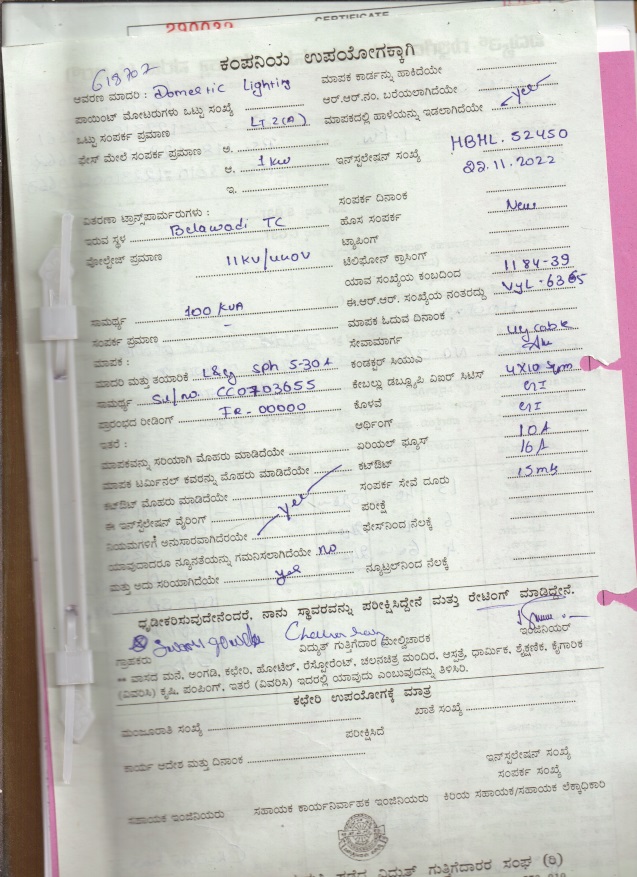 CERTIFICATE
290032
ಕಂಪನಿಯ ಉಪಯೋಗಕ್ಕಾಗಿ
618702
ಆವರಣ ಮಾದರಿ : Domestic Lighting
ಮಾಪಕ ಕಾರ್ಡನ್ನು ಹಾಕಿದೆಯೇ
ಪಾಯಿಂಟ್ ಮೋಟರುಗಳು ಒಟ್ಟು ಸಂಖ್ಯೆ
ಆರ್.ಆರ್.ನಂ. ಬರೆಯಲಾಗಿದೆಯೇ
ಒಟ್ಟು ಸಂಪರ್ಕ ಪ್ರಮಾಣ LT.2(A)
ಮಾಪಕದಲ್ಲಿ ಹಾಳೆಯನ್ನು ಇಡಲಾಗಿದೆಯೇ yes
ಫೇಸ್ ಮೇಲೆ ಸಂಪರ್ಕ ಪ್ರಮಾಣ ಅ.
ಆ. 1 KW
ಇನ್‌ಸ್ಟಲೇಷನ್ ಸಂಖ್ಯೆ HBHL. 52450
ಇ.
22.11.2022
ವಿತರಣಾ ಟ್ರಾನ್ಸ್‌ಪಾರ್ಮರುಗಳು :
ಸಂಪರ್ಕ ದಿನಾಂಕ
ಇರುವ ಸ್ಥಳ Belawadi TC
ಹೊಸ ಸಂಪರ್ಕ New
ವೋಲ್ಟೇಜ್ ಪ್ರಮಾಣ 11KV/440V
ಟ್ಯಾಪಿಂಗ್
ಟೆಲಿಫೋನ್ ಕ್ರಾಸಿಂಗ್
ಯಾವ ಸಂಖ್ಯೆಯ ಕಂಬದಿಂದ 1184-39
ಸಾಮರ್ಥ್ಯ 100 KVA
ಈ.ಆರ್.ಆರ್. ಸಂಖ್ಯೆಯ ನಂತರದ್ದು VYL-6365
ಸಂಪರ್ಕ ಪ್ರಮಾಣ -
ಮಾಪಕ ಓದುವ ದಿನಾಂಕ
ಮಾಪಕ :
ಸೇವಾಮಾರ್ಗ ug cable
ಮಾದರಿ ಮತ್ತು ತಯಾರಿಕೆ L&G SPh 5-30A
ಕಂಡಕ್ಟರ್ ಸಿಯುಎ
ಸಾಮರ್ಥ್ಯ Sl/no. CC0703655
ಕೇಬಲ್ಲು ಡಬ್ಲ್ಯೂಪಿ ವಿಐರ್ ಸಿಟಿಸ್ 4X10 Sqm
ಪ್ರಾರಂಭದ ರೀಡಿಂಗ್ IR-00000
ಕೊಳವೆ GI
ಇತರೆ :
ಆರ್ಥಿಂಗ್ GI
ಮಾಪಕವನ್ನು ಸರಿಯಾಗಿ ಮೊಹರು ಮಾಡಿದೆಯೇ
ಏರಿಯಲ್ ಫ್ಯೂಸ್ 10A
ಮಾಪಕ ಟರ್ಮಿನಲ್ ಕವರನ್ನು ಮೊಹರು ಮಾಡಿದೆಯೇ
ಕಟ್‌ಔಟ್ 16A
ಕಟ್‌ಔಟ್ ಮೊಹರು ಮಾಡಿದೆಯೇ
ಸಂಪರ್ಕ ಸೇವೆ ದೂರು 15mts
ಈ ಇನ್‌ಸ್ಟಲೇಷನ್ ವೈರಿಂಗ್ yes
ಪರೀಕ್ಷೆ
ನಿಯಮಗಳಿಗೆ ಅನುಸಾರವಾಗಿದೆಯೇ
ಫೇಸ್‌ನಿಂದ ನೆಲಕ್ಕೆ
ಯಾವುದಾದರೂ ನ್ಯೂನತೆಯನ್ನು ಗಮನಿಸಲಾಗಿದೆಯೇ no
ಮತ್ತು ಅದು ಸರಿಯಾಗಿದೆಯೇ yes
ನ್ಯೂಟ್ರಲ್‌ನಿಂದ ನೆಲಕ್ಕೆ
ಧೃಡೀಕರಿಸುವುದೇನೆಂದರೆ, ನಾನು ಸ್ಥಾವರವನ್ನು ಪರೀಕ್ಷಿಸಿದ್ದೇನೆ ಮತ್ತು ರೇಟಿಂಗ್ ಮಾಡಿದ್ದೇನೆ.
ಗ್ರಾಹಕರು
ವಿದ್ಯುತ್ ಗುತ್ತಿಗೆದಾರ ಮೇಲ್ವಿಚಾರಕ
ಇಂಜಿನಿಯರ್
** ವಾಸದ ಮನೆ, ಅಂಗಡಿ, ಕಛೇರಿ, ಹೋಟೆಲ್, ರೆಸ್ಟೋರೆಂಟ್, ಚಲನಚಿತ್ರ ಮಂದಿರ, ಆಸ್ಪತ್ರೆ, ಧಾರ್ಮಿಕ, ಶೈಕ್ಷಣಿಕ, ಕೈಗಾರಿಕ
(ವಿವರಿಸಿ) ಕೃಷಿ, ಪಂಪಿಂಗ್, ಇತರೆ (ವಿವರಿಸಿ) ಇದರಲ್ಲಿ ಯಾವುದು ಎಂಬುವುದನ್ನು ತಿಳಿಸಿರಿ.
ಕಛೇರಿ ಉಪಯೋಗಕ್ಕೆ ಮಾತ್ರ
ಮಂಜೂರಾತಿ ಸಂಖ್ಯೆ
ಖಾತೆ ಸಂಖ್ಯೆ
ಪರೀಕ್ಷಿಸಿದೆ
ಕಾರ್ಯ ಆದೇಶ ಮತ್ತು ದಿನಾಂಕ
ಇನ್‌ಸ್ಟಲೇಷನ್ ಸಂಖ್ಯೆ
ಸಂಪರ್ಕ ಸಂಖ್ಯೆ
ಸಹಾಯಕ ಇಂಜಿನಿಯರು
ಸಹಾಯಕ ಕಾರ್ಯನಿರ್ವಾಹಕ ಇಂಜಿನಿಯರು
ಕಿರಿಯ ಸಹಾಯಕ/ಸಹಾಯಕ ಲೆಕ್ಕಾಧಿಕಾರಿ
ವಿದ್ಯುತ್ ಗುತ್ತಿಗೆದಾರರ ಸಂಘ (ರಿ)